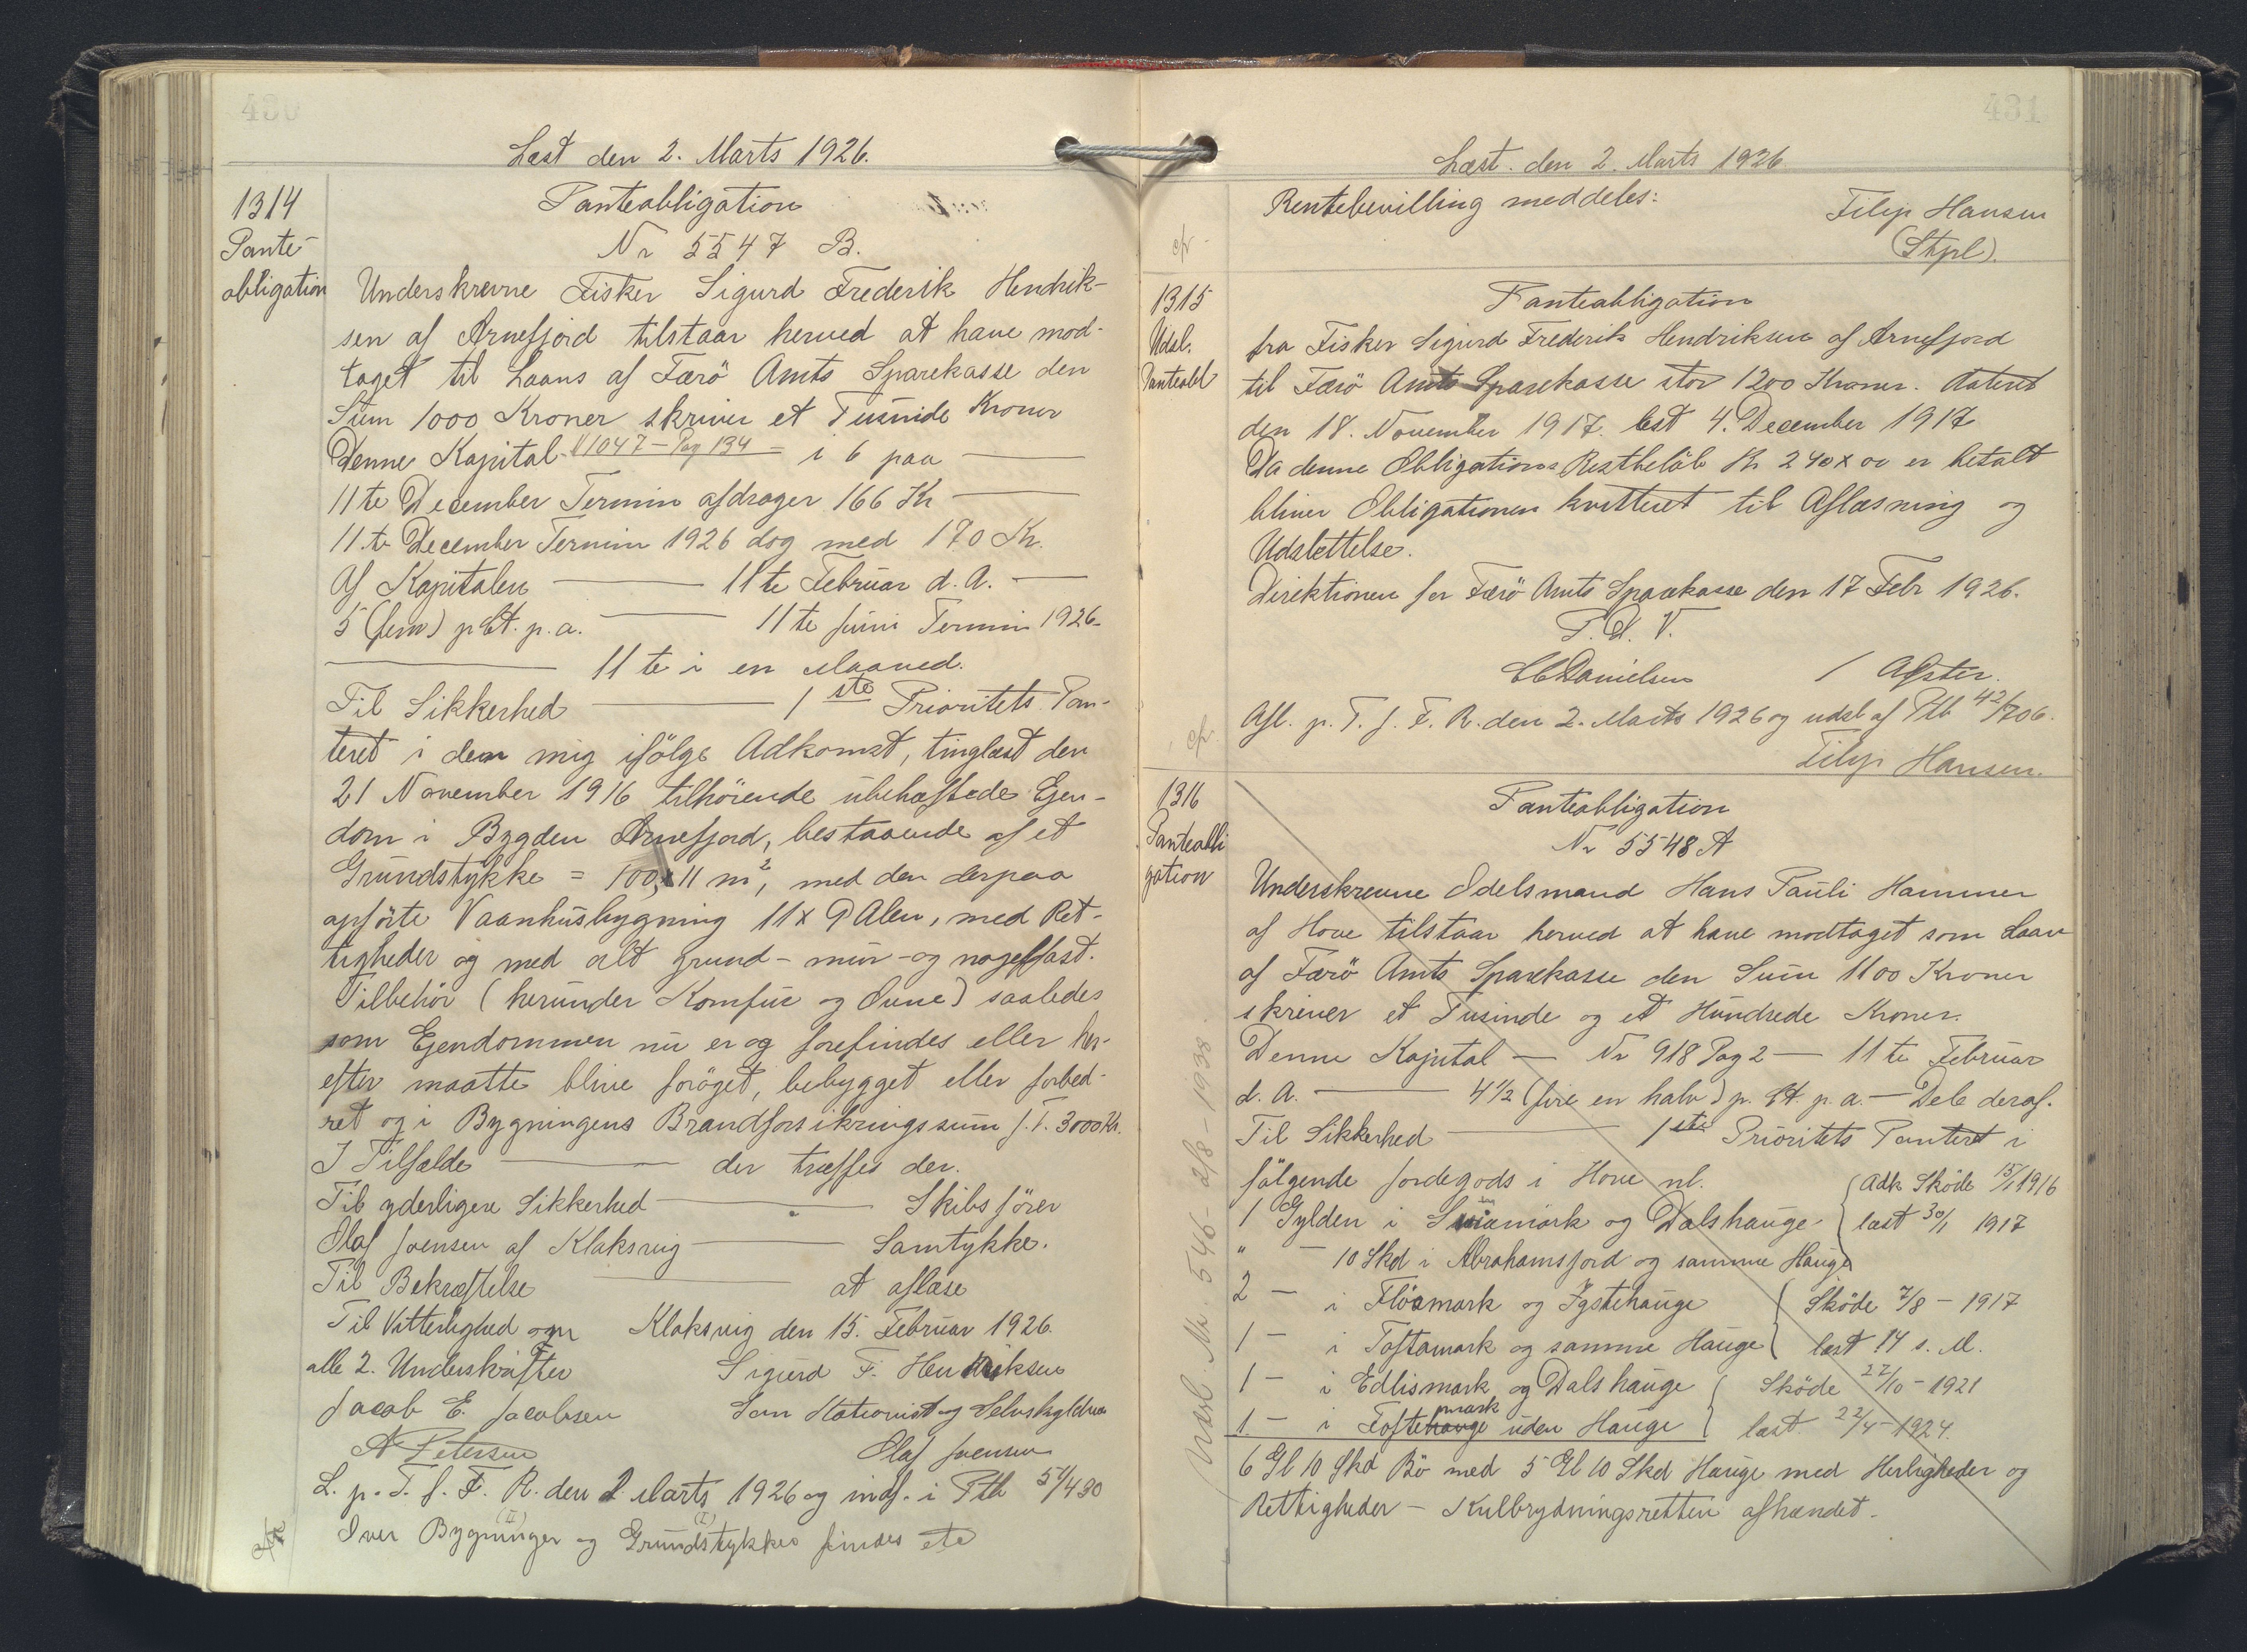 480
Læst den 2. Marts 1926.
1314
Pante-
obligation
Panteobligation
Nr 5547 B.
Underskrevne Fisker Sigurd Frederik Hendrik-
sen af Arnefjord tilstaar herved at have mod-
taget til Laans af Færö Amts Sparekasse den
Sum 1000 Kroner skriver et Tusinde Kroner
Denne Kapital - N 1047 - Pag 134 - i 6 paa
11te December Termin afdrager 166 Kr
11te December Termin 1926 dog med 170 Kr.
Af Kapitalen 11te Februar d. A.
5 (fem) pCt. p. a. 11te Juni Termin 1926-
11te i en Maaned.
Til Sikkerhed 1ste Prioritets Pan-
teret i den mig ifölge Adkomst, tinglæst den
21 November 1916 tilhörende ubehæftede Ejen-
dom i Bygden Arnefjord, bestaaende af et
Grundstykke = 100,11 m2, med den derpaa
opförte Vaanhusbygning 11 x 9 Alen, med Ret-
tigheder og med alt grund- mur- og nagelfast.
Tilbehör (herunder Komfur og Ovne) saaledes
som Ejendommen nu er og forefindes eller her-
efter maatte blive foröget, bebygget eller forbed-
ret og i Bygningens Brandforsikringssum f. T. 3000 Kr.
I Tilfælde der træffes der.
Til yderligere Sikkerhed Skibsförer
Olaf Joensen af Klaksvig Samtykke.
Til Bekræftelse at aflæse
Til Vitterlighed om Klaksvig den 15. Februar 1926.
alle 2. Underskrifter Sigurd F. Hendriksen
Jacob E. Jacobsen Som Kationist og Selvskyldner
A Petersen Olaf Joensen
L. p. T. f. F. R. den 2. Marts 1926 og indf. i Ptb 51/480
Over Bygninger (II) og Grundstykker (I) findes ete
481
Læst. den 2. Marts 1926
Rentebevilling meddeles:
Filip Hansen
(Stpl).
cp
1315
Udsl.
Panteobl
Panteobligation
fra Fisker Sigurd Frederik Hendriksen af Arnefjord
til Færö Amts Sparekasse stor 1200 Kroner. dateret
den 18. November 1917. læst 4. December 1917
Da denne Obligations Restbelöb Kr 240 x 00 er betalt
bliver Obligationen kvitteret til Aflæsning og
Udslettelse.
Direktionen for Færö Amts Sparekasse den 17 Febr 1926.
P. D. V.
Danielsen /
Afl. p. T. f. F. R. den 2. Marts 1926 og udsl af Ptb 42/706.
Filip Hansen.
cp.
1316
Panteobli
gation
Panteobligation
Nr 5548 A
Underskrevne Odelsmand Hans Pauli Hammer
af Hove tilstaar herved at have modtaget som Laan
af Færö Amts Sparekasse den Sum 1100 Kroner
skriver et Tusinde og et Hundrede Kroner.
Denne Kapital - Nr 918 Pag 2 - 11te Februar
d. A. 4 1/2 (fire en halv) p. Ct p. a. - Dele deraf.
Til Sikkerhed 1ste Prioritets Panteret i
fölgende Jordegods i Hove nl.
1 Gylden i mark og Dalshauge { Adk Sköde 15/1 1916
læst 30/1 1917
" - 10 Skd i Abrahamsjord og samme Hauge
2 - i Flöamark og Ygstehauge { Sköde 7/8 - 1917
1 - i Toftamark og samme Hauge { læst 14 s. M.
1 - i Edlismark og Dalshauge { Sköde 22/10 - 1921
1 - i Toftemark uden Hauge { læst 22/4 - 1924.
6 Gl 10 Skd Bö med 5 Gl 10 Skd Hauge med Herligheder og
Rettigheder - Kulbrydningsretten afhændet.
Nr. 546 - 2/8 - 1938.